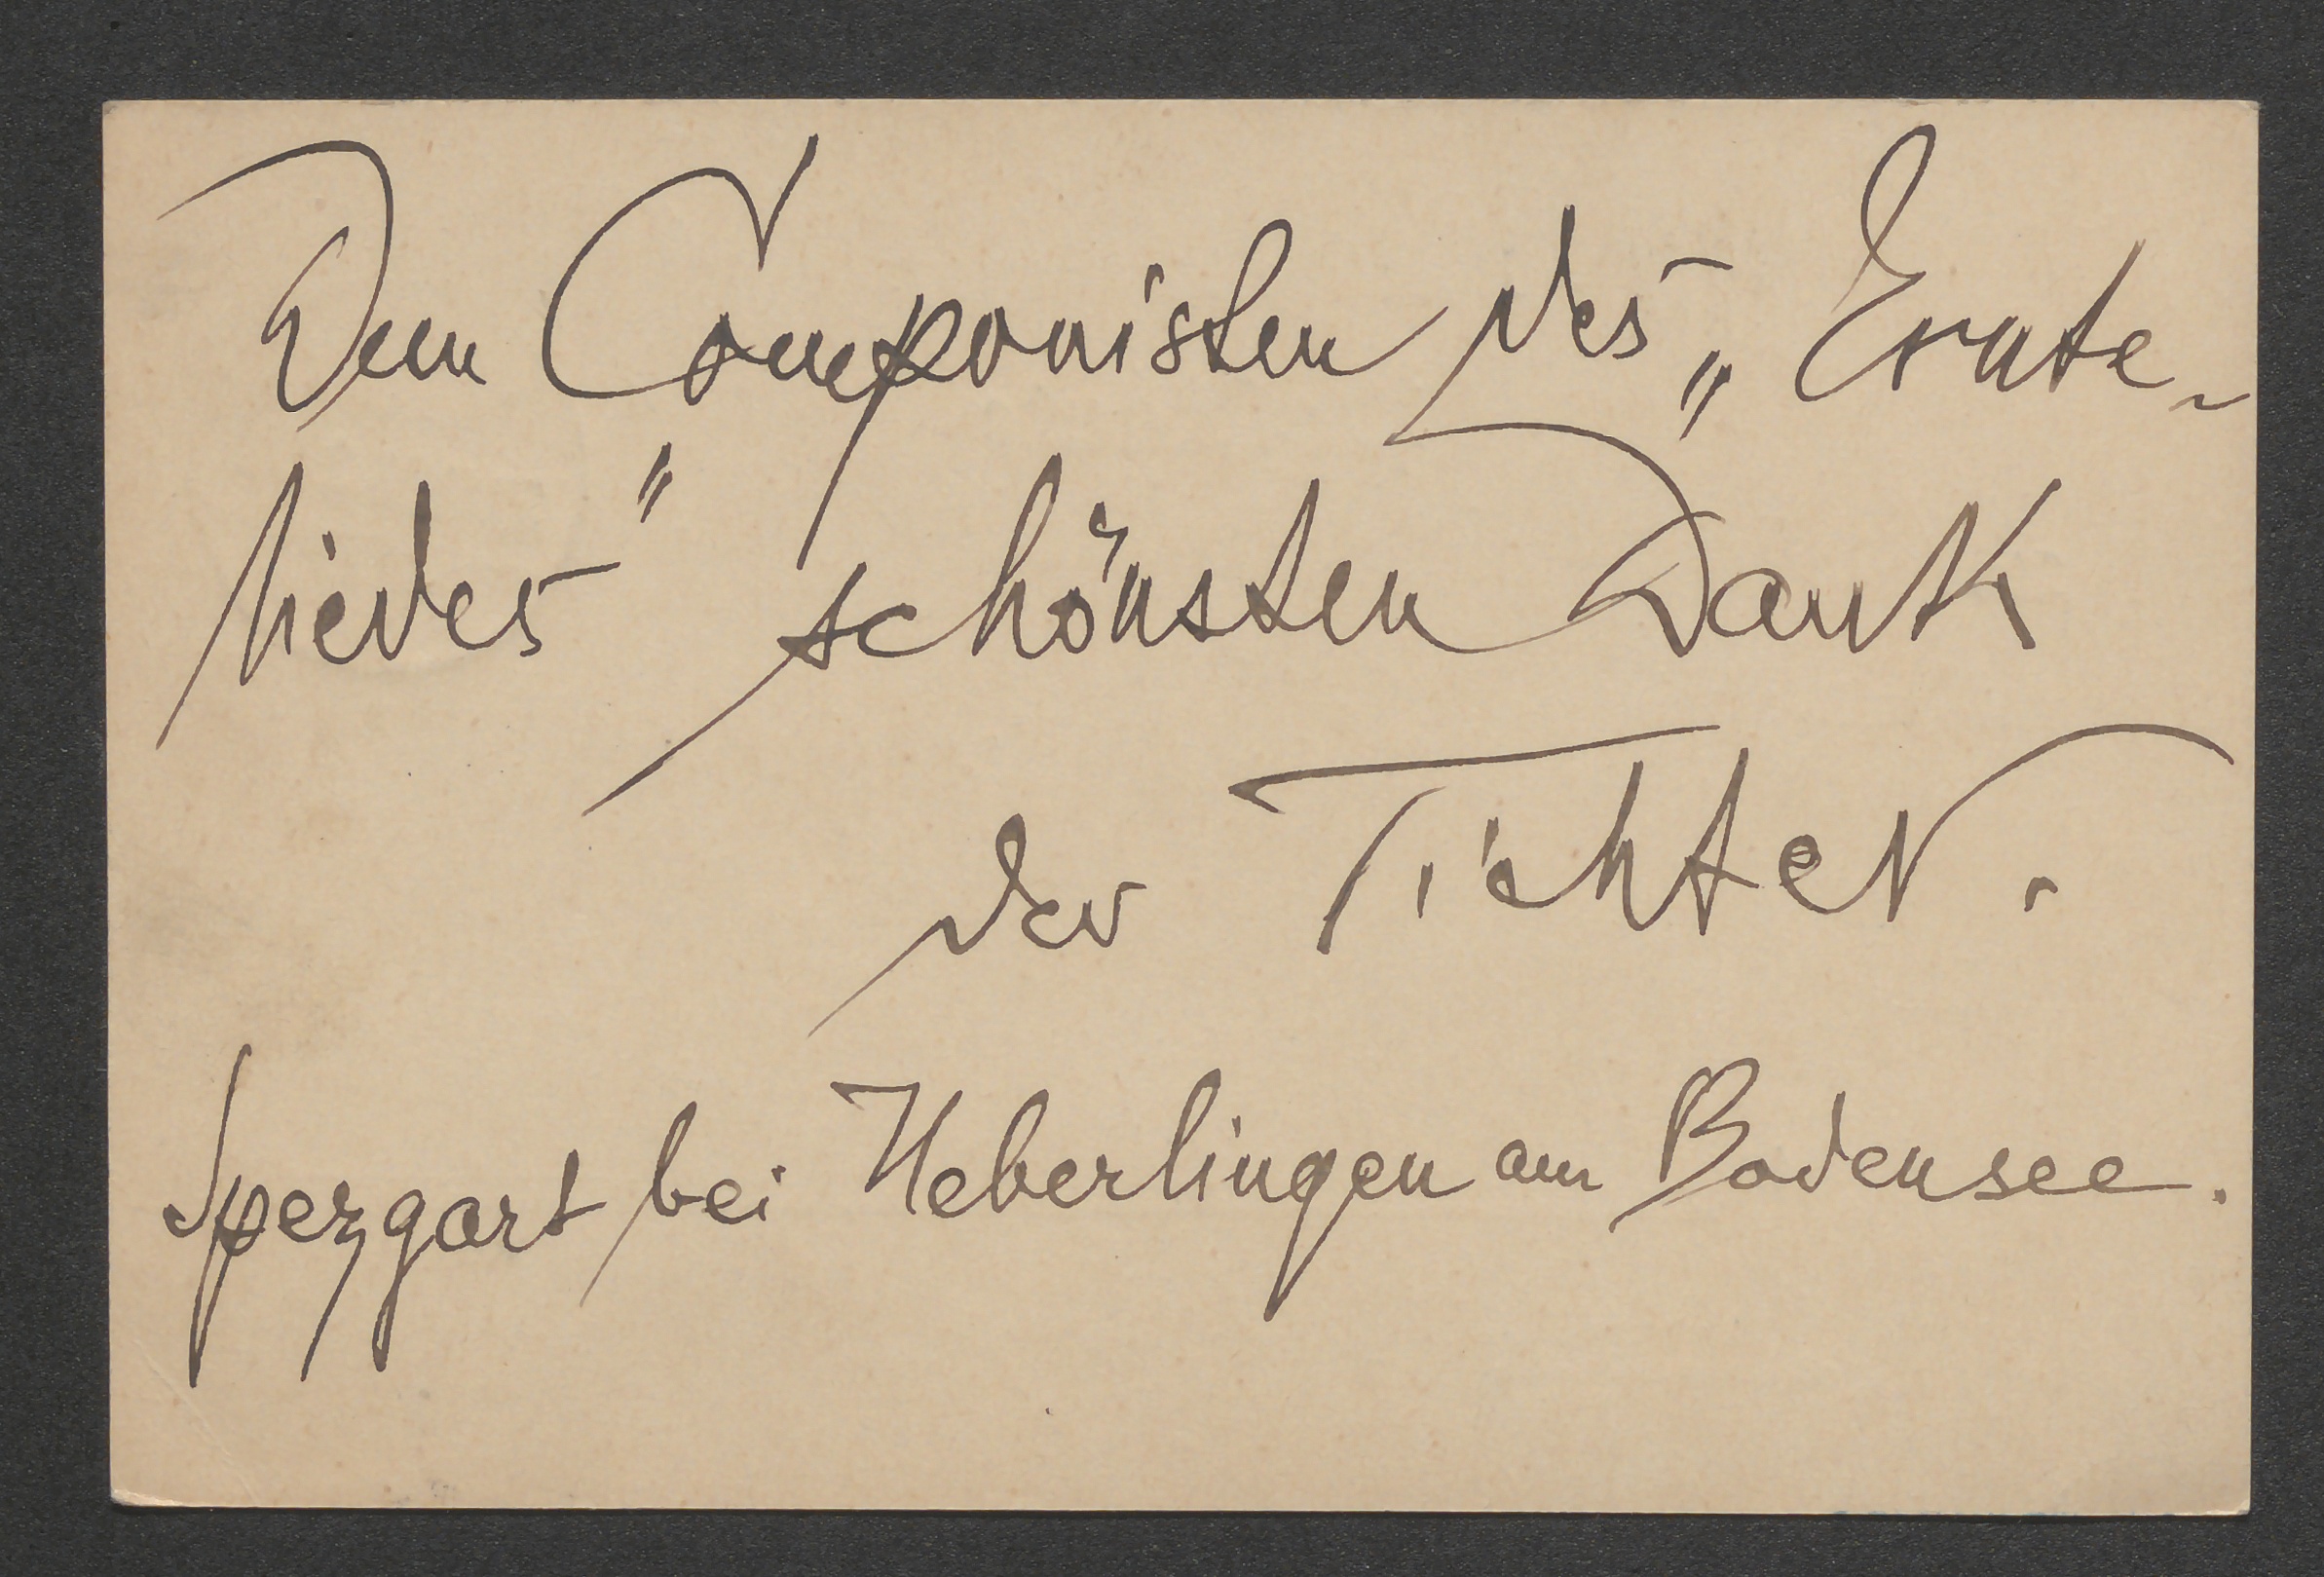 Dem Componisten des „Ernte-
liedes" schönsten Dank
der Tichter.
Spezgart bei Ueberlingen am Bodensee.